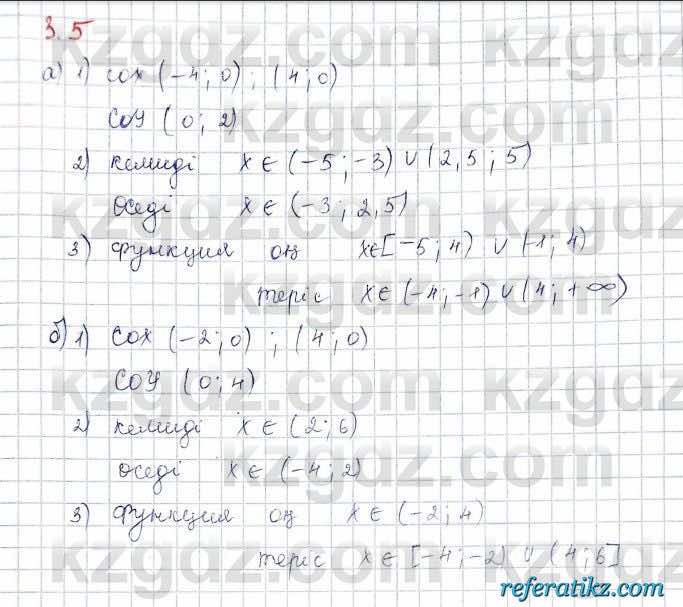 3.5
а) 1) COX (-4; 0); (4; 0)
COY (0; 2)
2) кемиді x ∈ (-5; -3) ∪ (2,5; 5)
өседі x ∈ (-3; 2,5)
3) функция оң x∈[-5; 4) ∪ (-1; 4)
теріс x ∈ (-4; -1) ∪ (4; +∞)
б) 1) COX (-2; 0); (4; 0)
COY (0; 4)
2) кемиді x ∈ (2; 6)
өседі x ∈ (-4; 2)
3) функция оң x ∈ (-2; 4)
теріс x ∈ [-4; -2) ∪ (4; 6]
kzgdz.com
referatikz.com